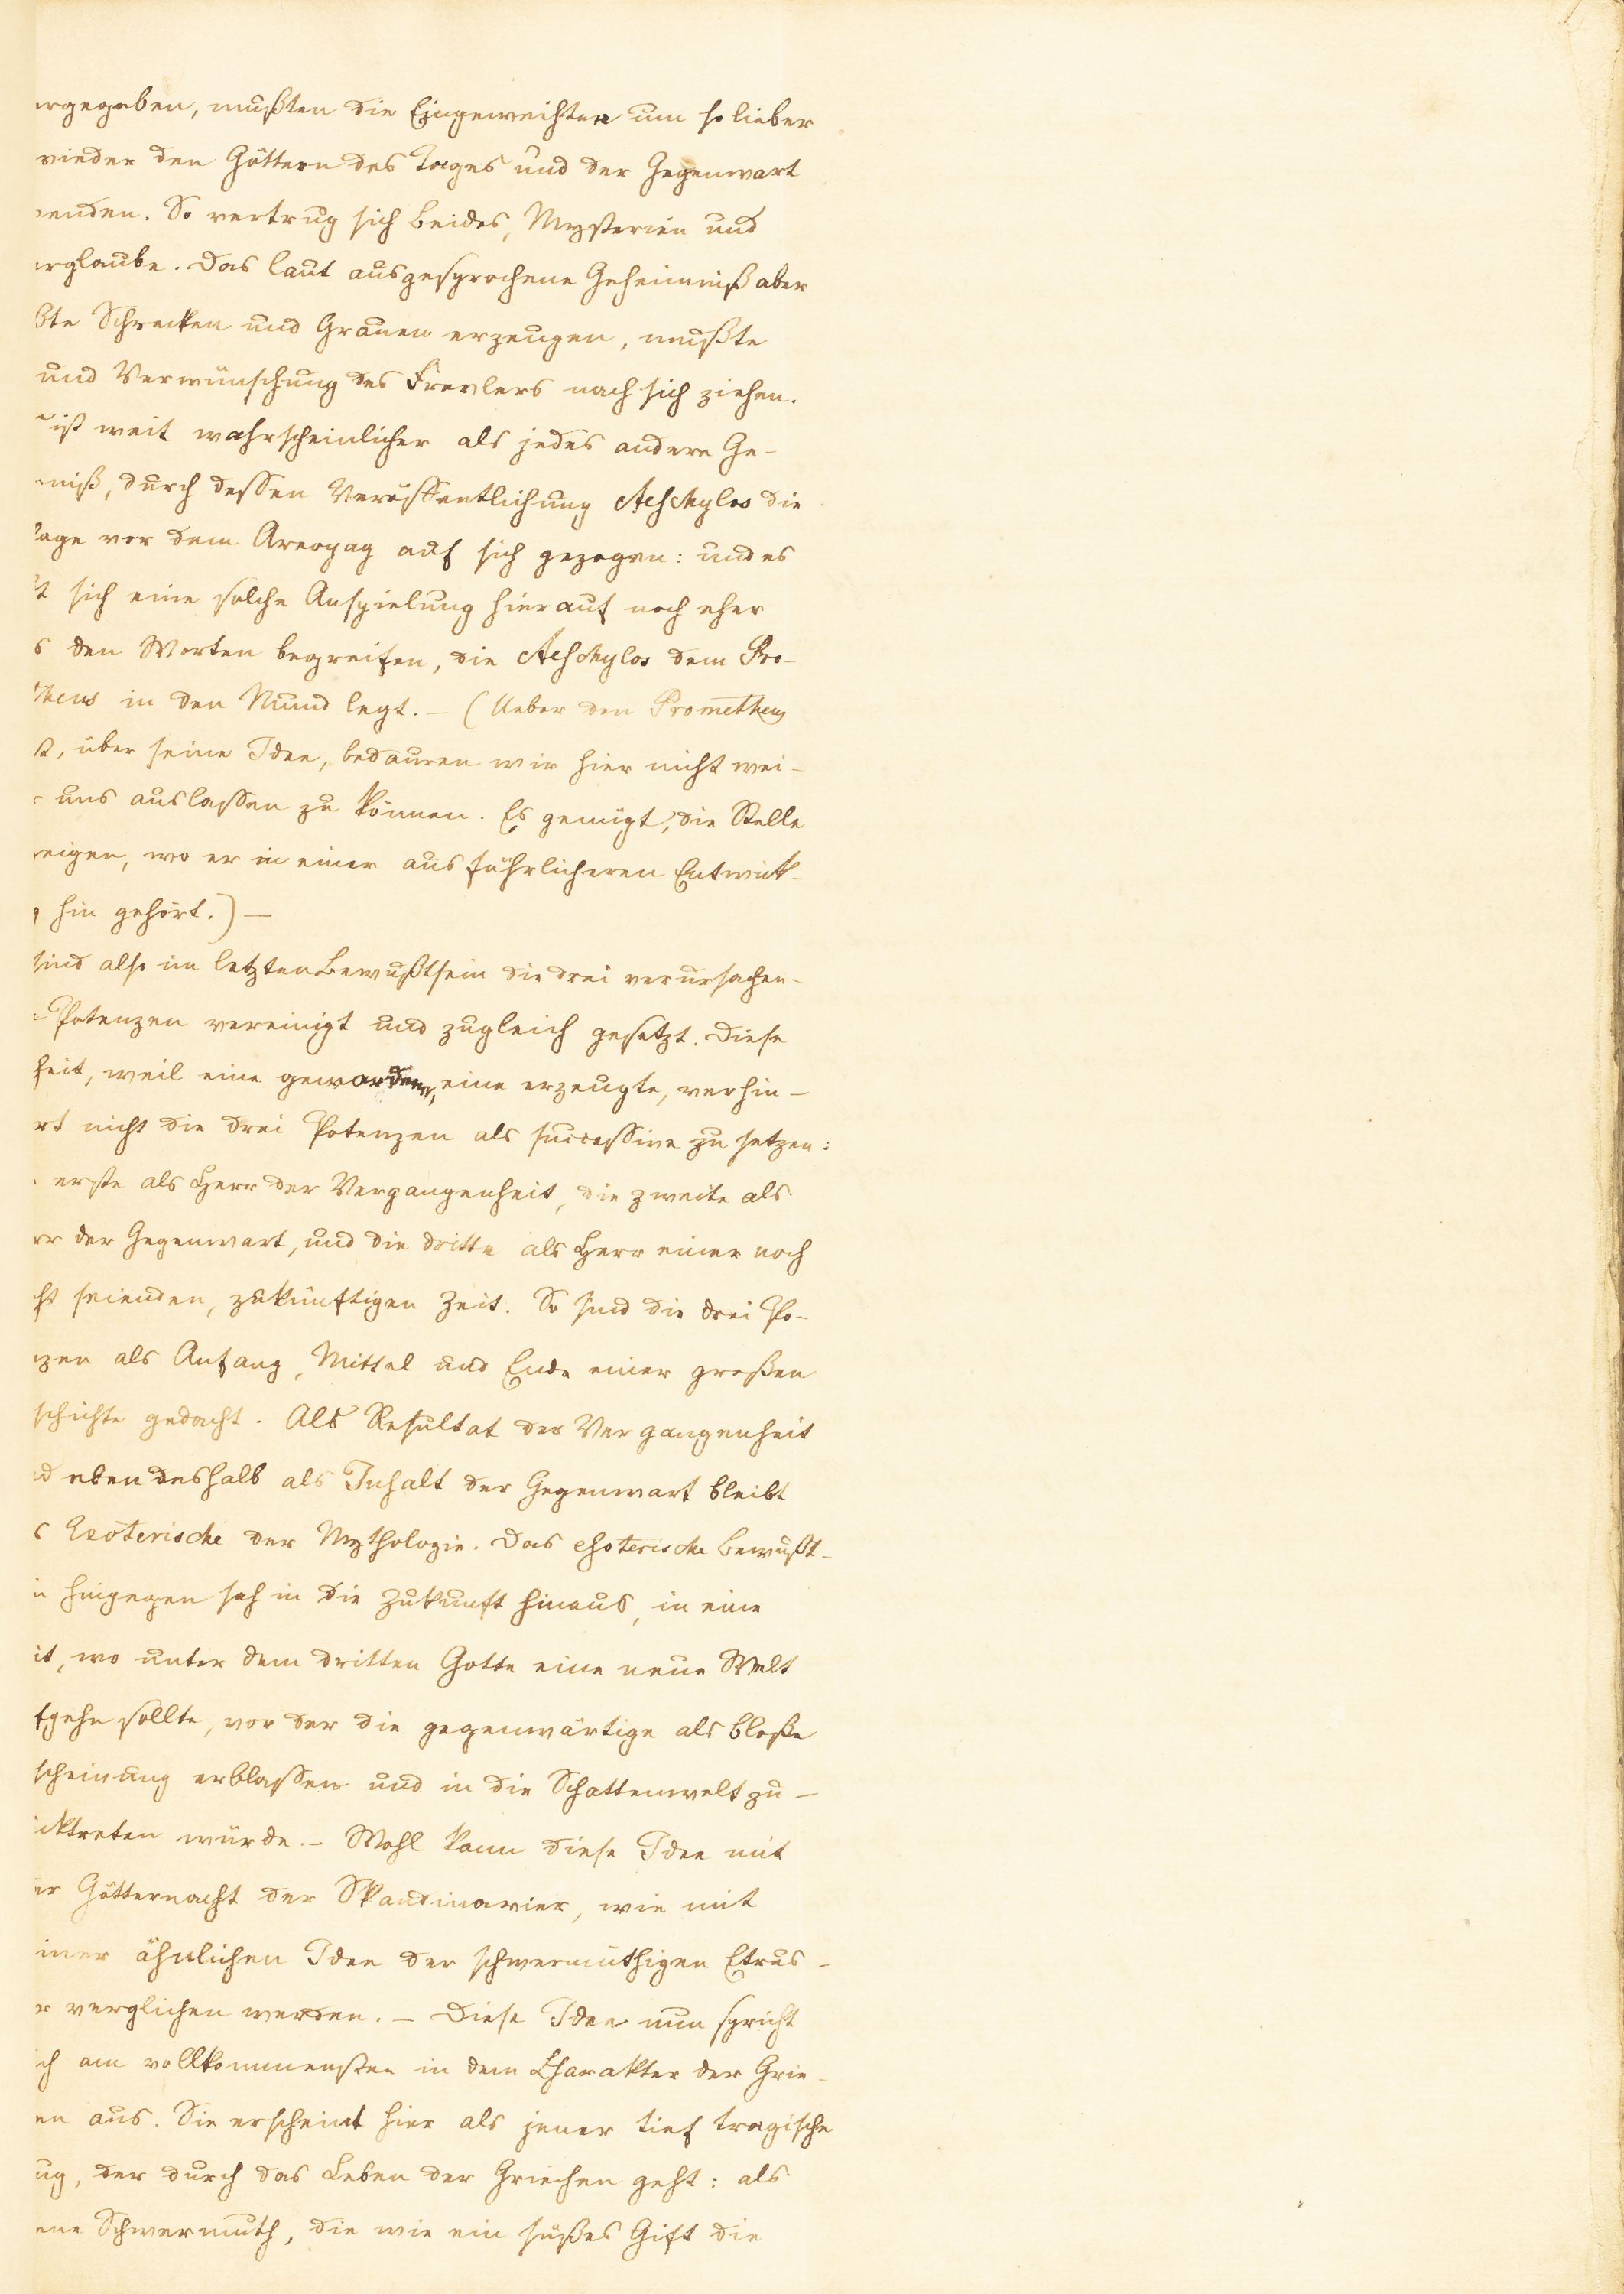 ergegeben, mußten die Eingeweihten um so lieber
wieder den Göttern des Tages und der Gegenwart
wenden. So vertrug sich beides, Mysterien und
erglaube. Das laut ausgesprochene Geheimniß aber
ßte Schrecken und Grauen erzeugen, mußte
und Verwünschung des Frevlers nach sich ziehen.
ist weit wahrscheinlicher als jedes andere Ge-
mniß, durch dessen Veröffentlichung Aeschylos die
lage vor dem Areopag auf sich gezogen: und es
t sich eine solche Anspielung hierauf noch eher
s den Worten begreifen, die Aeschylos dem Pro-
theus in den Mund legt. – (Ueber den Prometheus
st, über seine Idee, bedauren wir hier nicht wei-
r uns auslassen zu können. Es genügt, die Stelle
zeigen, wo er in einer ausführlicheren Entwick-
g hin gehört.) –
sind also im letzten Bewußtsein die drei verursachen-
e Potenzen vereinigt und zugleich gesetzt. Diese
heit, weil eine gewordene, eine erzeugte, verhin-
rt nicht die drei Potenzen als successive zu setzen:
e erste als Herr der Vergangenheit, die zweite als
rr der Gegenwart, und die dritte als Herr einer noch
cht seienden, zukünftigen Zeit. So sind die drei Po-
nzen als Anfang, Mittel und Ende einer großen
schichte gedacht. Als Resultat der Vergangenheit
nd eben deshalb als Inhalt der Gegenwart bleibt
s Exoterische der Mythologie. Das esoterische Bewußt-
n hingegen sah in die Zukunft hinaus, in eine
it, wo unter dem dritten Gotte eine neue Welt
fgehn sollte, vor der die gegenwärtige als bloße
scheinung erblassen und in die Schattenwelt zu-
ücktreten würde. – Wohl kann diese Idee mit
er Götternacht der Skandinavier, wie mit
iner ähnlichen Idee der schwermüthigen Etrus-
r verglichen werden. – Diese Idee nun spricht
ch am vollkommensten in dem Charakter der Grie-
en aus. Sie erscheint hier als jener tief tragische
ug, der durch das Leben der Griechen geht: als
ene Schwermuth, die wie ein süßes Gift die